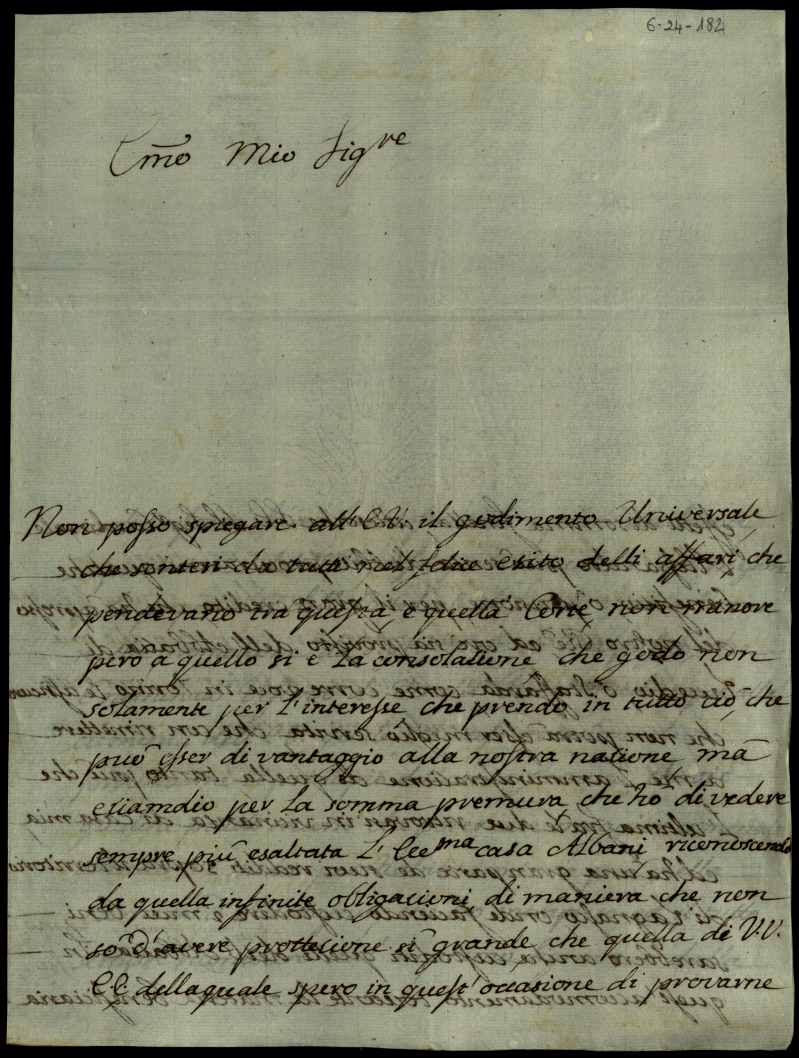 6-24-182
Emo Mio Sigre
Non posso spiegare all' E.V. il godimento Universale,
che sentesi da tutti nel felice esito delli affari, che
pendevano tra questa, e quella Corte, non minore
pero a quello si è la consolatione che godo non
solamente per l'interesse che prendo in tutto ciò, che
può esser di vantaggio alla nostra natione mà
etiamdio per la somma premura che hò di vedere
sempre più esaltata l' Ecc.ma casa Albani, riconoscendo
da quella infinite obligationi, di maniera che non
so d'avere prottetione sì grande che quella di V.V.
E.E. della quale spero in quest' occasione di provarne